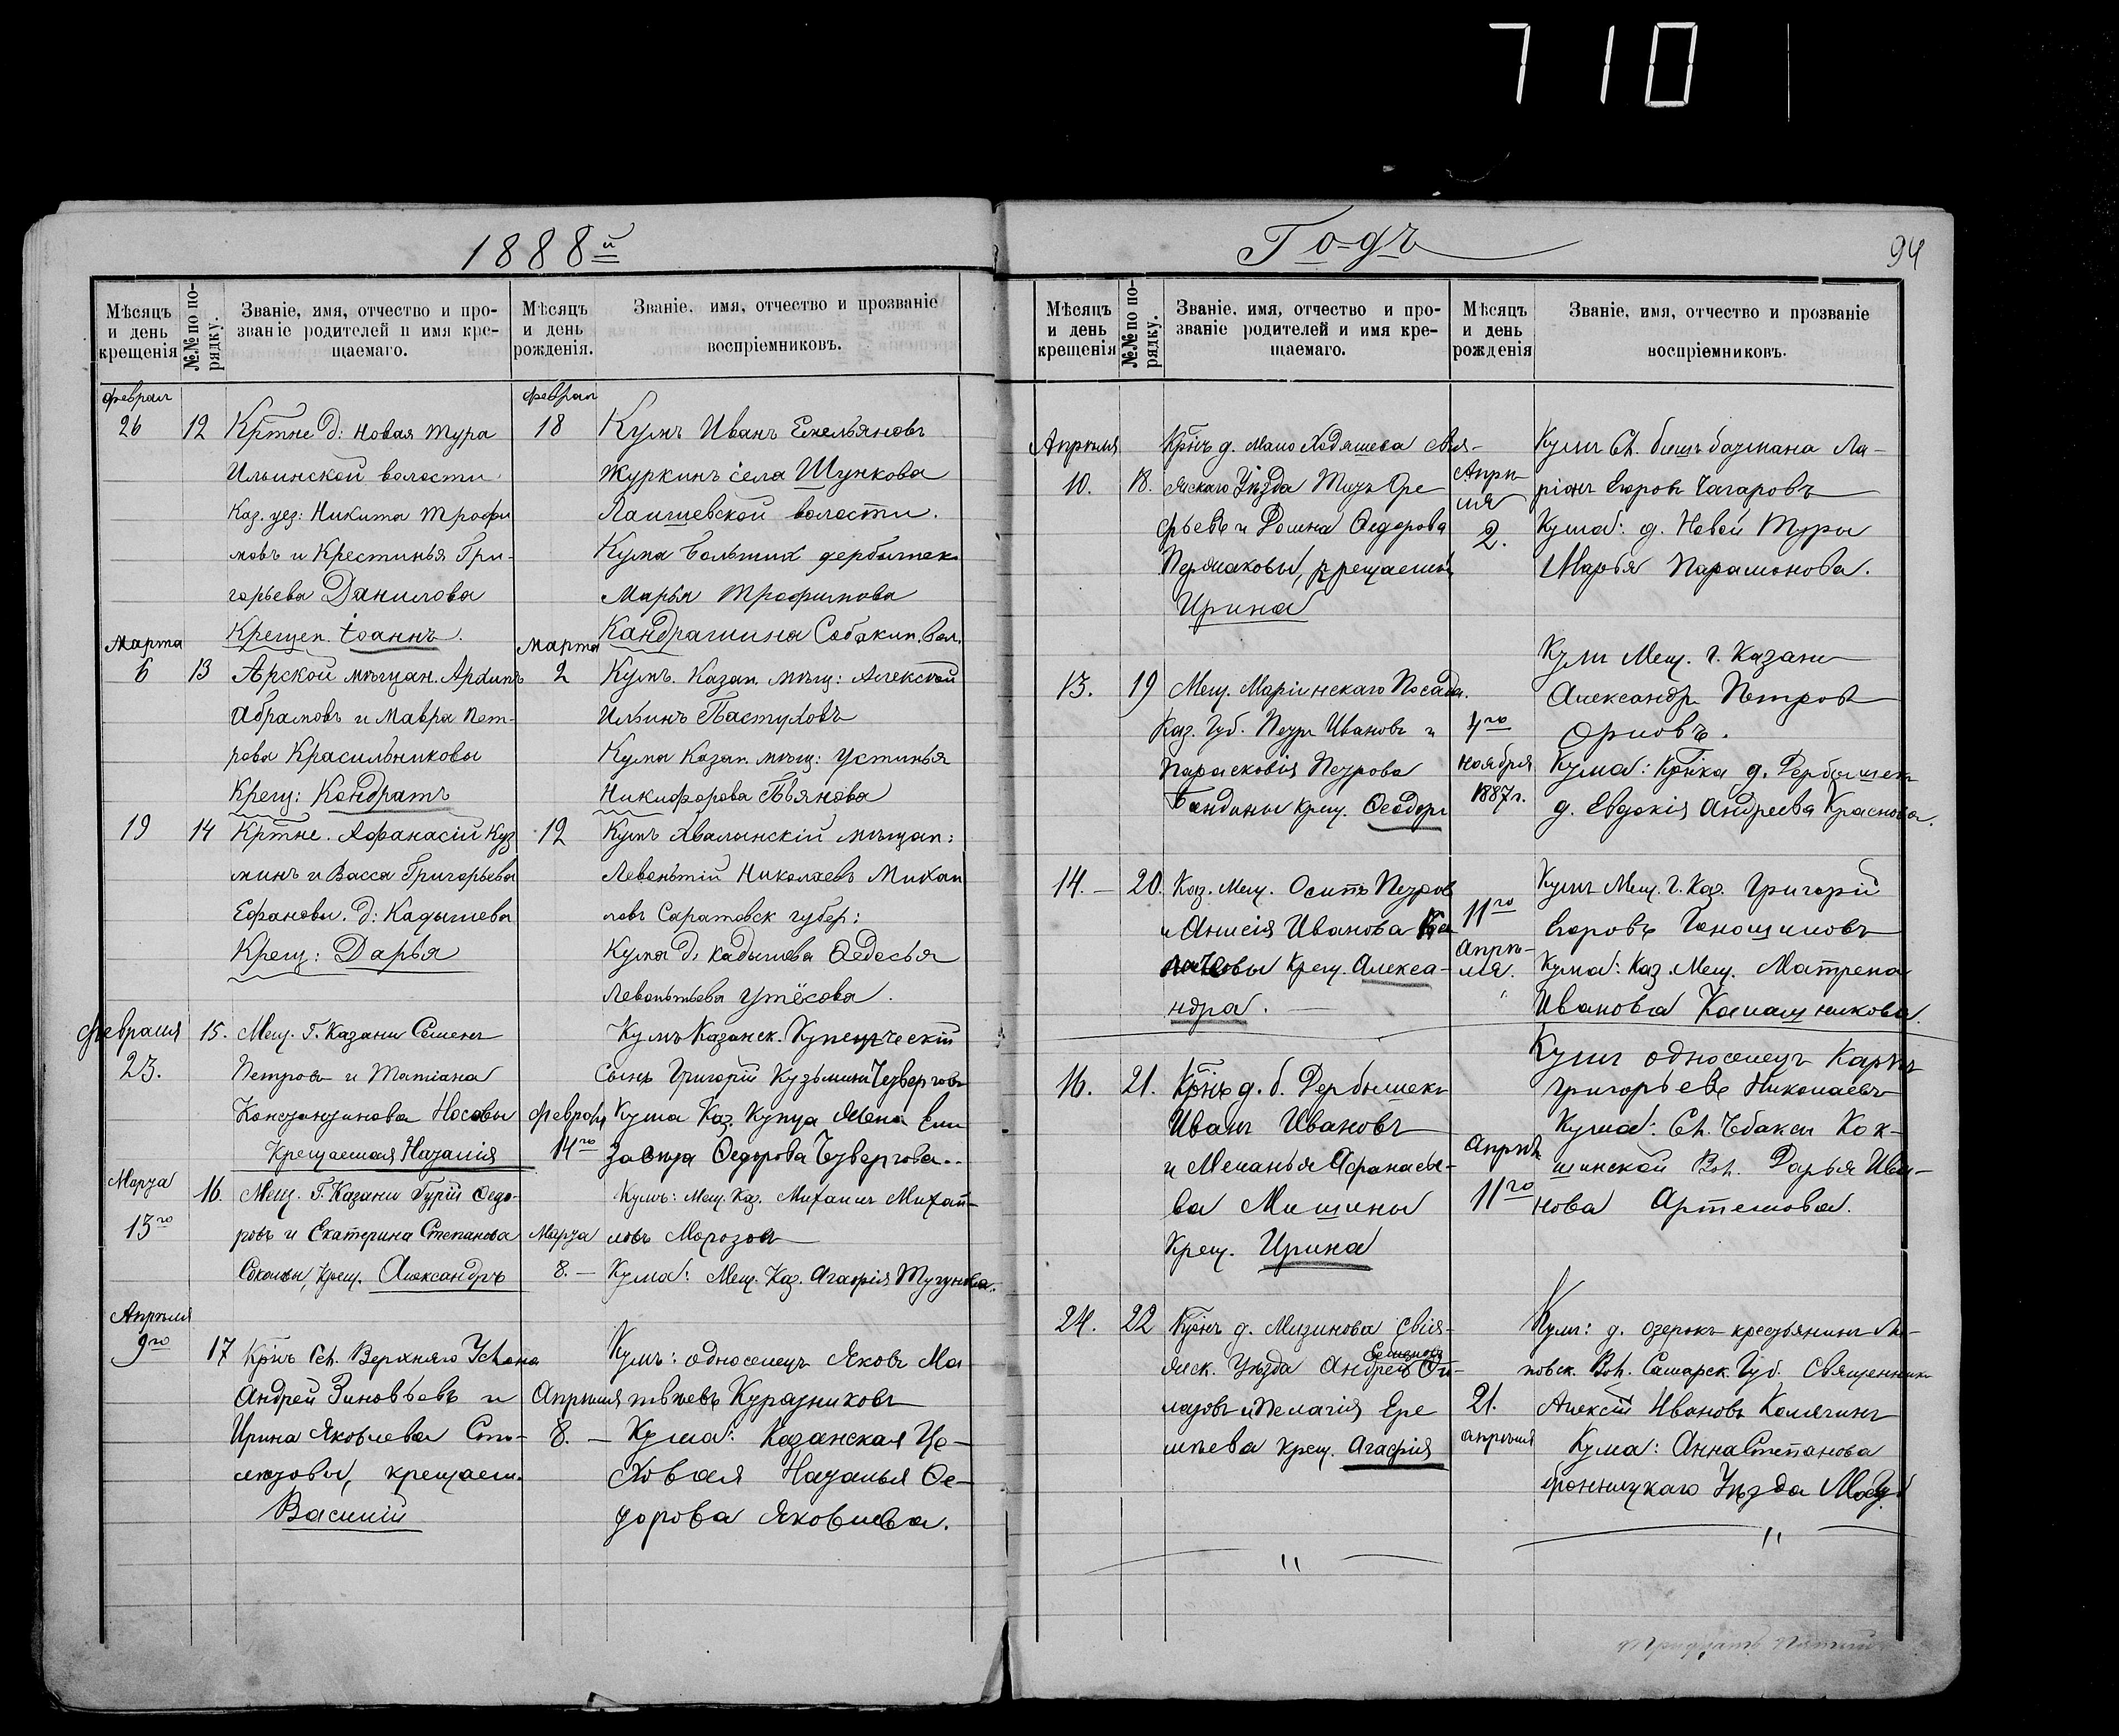 710
1888й
Годъ
94
Мѣсяцъ и день крещенія
№№ по порядку.
Званіе, имя, отчество и прозваніе родителей и имя крещаемаго.
Мѣсяцъ и день рожденія.
Званіе, имя, отчество и прозваніе воспріемниковъ.
Феврал
26 12 Кртне д: новая тура
Ильинской волости
Каз. уез: Никита Трофи
мовъ и Крестинья Гри-
горьева Данилова
Крещен. Іоаннъ.
Феврал
18
Кумъ Иванъ Емельяновъ
Журкинъ села Шункова
Лаишевской волости.
Кума больших дербышек
Марья Трофимова
Кандрашина Собакин. вол.
Марта
6 13 Арской мѣщан. Архипъ
Абрамовъ и Мавра Пет-
рова Красильниковы
Крещ: Кондратъ
марта
2
Кумъ. Казан. мѣщ: Алексѣй
Ильинъ Пастуховъ
Кума Казан. мѣщ: Устинья
Никифорова Пьянова
19 14 Кртне. Афанасій Куз
минъ и Васса Григорьева
Ефановы. д: Кадышева
Крещ: Дарья
12
Кумъ Хвалынскій мѣщан:
Левонтій Николаевъ Михай
ловъ Саратовск губер:
Кума д. кадышева Ѳедосья
Левонтьева Утёсова.
Февраля
23.
15. Мещ. Г. Казани Семенъ
Петровъ и Татіана
Константинова Носовы
Крещаемая Наталія
февраля
14го
Кумъ Казанск. Купеческій
Сынъ Григорій Кузьминъ Четверговъ
Кума Каз. Купца Жена Ели
завета Ѳедорова Четвергова..
Марта
13го
16. Мещ. Г. Казани Гурій Ѳедо-
ровъ и Екатерина Степанова
Соколовы, Крещ. Александръ
Марта
8. —
Кумъ: Мещ. Каз. Михаилъ Михай-
ловъ Морозовъ
Кума: Мещ. Каз. Агафія Тугунова.
Апрѣля
9го
17 Кр-нъ Сел. Верхняго Услона
Андрей Зиновьевъ и
Ирина Яковлева
крещаем.
Василій
Апрѣля
8. —
Кумъ: односелецъ Яковъ Ма
твѣевъ Курятниковъ
Кума: Казанская Це-
ховая Наталья Ѳе-
дорова Яковлева.
Мѣсяцъ и день крещенія
№№ по порядку.
Званіе, имя, отчество и прозваніе родителей и имя крещаемаго.
Мѣсяцъ и день рожденія
Званіе, имя, отчество и прозваніе воспріемниковъ.
Апрѣля
10. 18. Кр-нъ д. Мало Ходяшева
Уѣзда
и Ѳедорова
Пермаковы, крещаемая
Ирина
Апрѣ
ля
2.
Кумъ Ла-
ріонъ Егоровъ Чагаровъ
Кума: д. Новой Туры
Марья Парамонова.
13. 19 Мещ. Маріинскаго Посада.
Каз. Губ. Петръ Ивановъ и
Парасковія Петрова
крещ. Ѳеодоръ
ноября
1887 г.
Кумъ Мещ. г. Казани
Александръ Петровъ
Орловъ.
Кума: Кр-нка д. Дербышек
д. Евдокія Андреева Краснова.
14. — 20. Каз. Мещ. Осипъ Петровъ
и Анисія Иванова
Крещ. Алекса-
ндра.
11го
апрѣ-
ля.
Кумъ Мещ. г. Каз. Григорій
Егоровъ
Кума: Каз. Мещ. Матрена
Иванова Калашникова.
16. 21. Кр-нъ д. б. Дербышекъ
Иванъ Ивановъ
и Меланья Афанасье-
ва Мишины
Крещ. Ирина
Апрѣля
11го
Кумъ односелецъ Карпъ
Григорьевъ Николаевъ
Кума: Сел. Чебакси Как-
шинской Вол. Дарья Ива-
нова Артемова.
24. 22 Кр-нъ д. Мизинова Свія-
жск. Уѣзда Андрей Семеновъ
и Пелагія Ере
мѣева крещ. Агафія
21.
апрѣля
Кумъ: д. озерокъ крестьянинъ
Вол. Самарск. Губ.
Алексѣй Ивановъ
Кума: Анна Степанова
бронницкаго Уѣзда